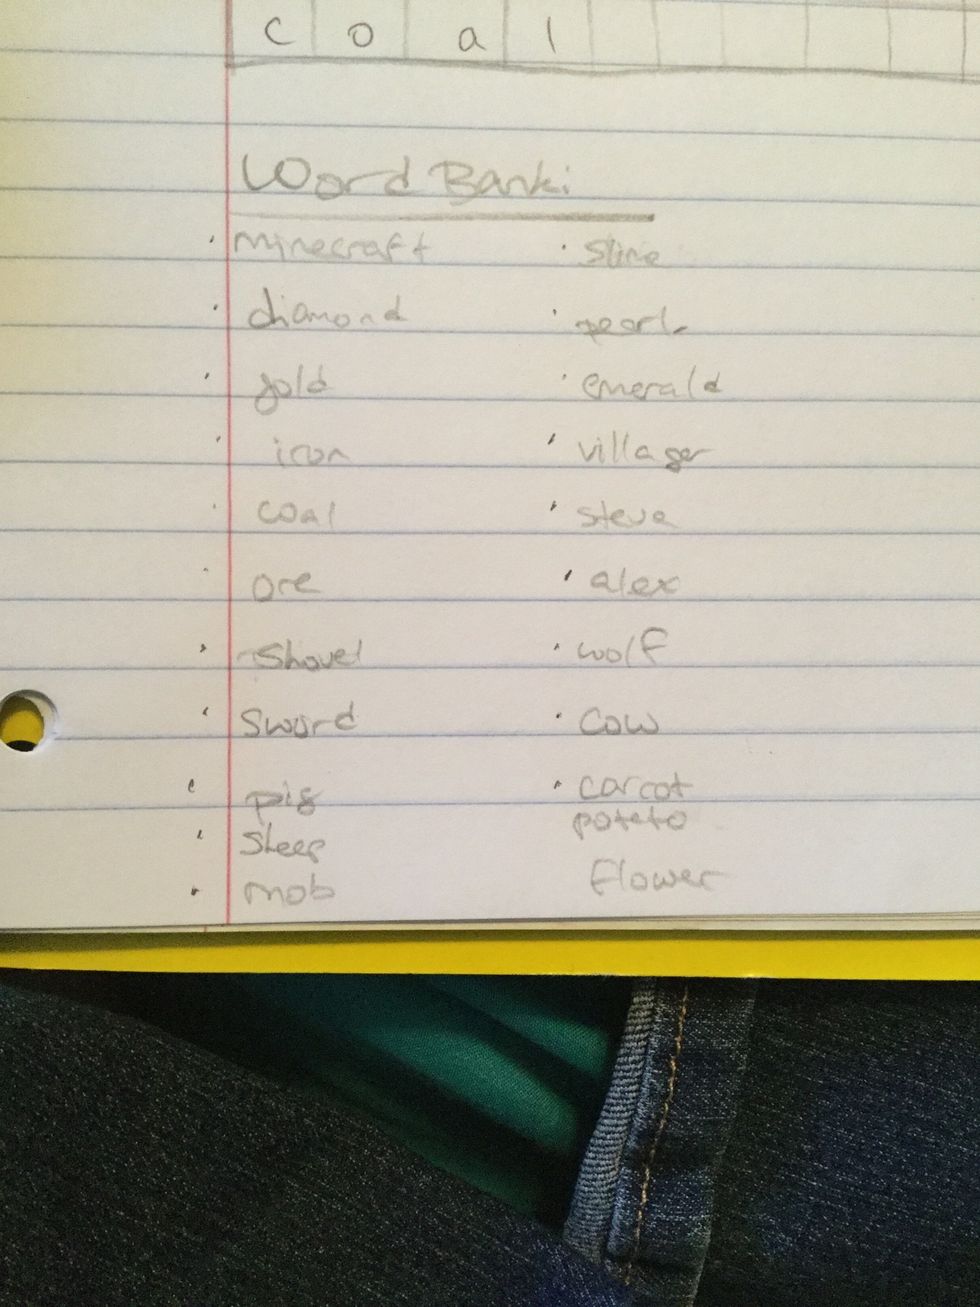 c o a l
Word Bank:
· minecraft
· diamond
· gold
· iron
· coal
· ore
· shovel
· sword
· pig
· sheep
· mob
· slime
· pearl
· emerald
· villager
· steve
· alex
· wolf
· cow
· carrot
potato
flower